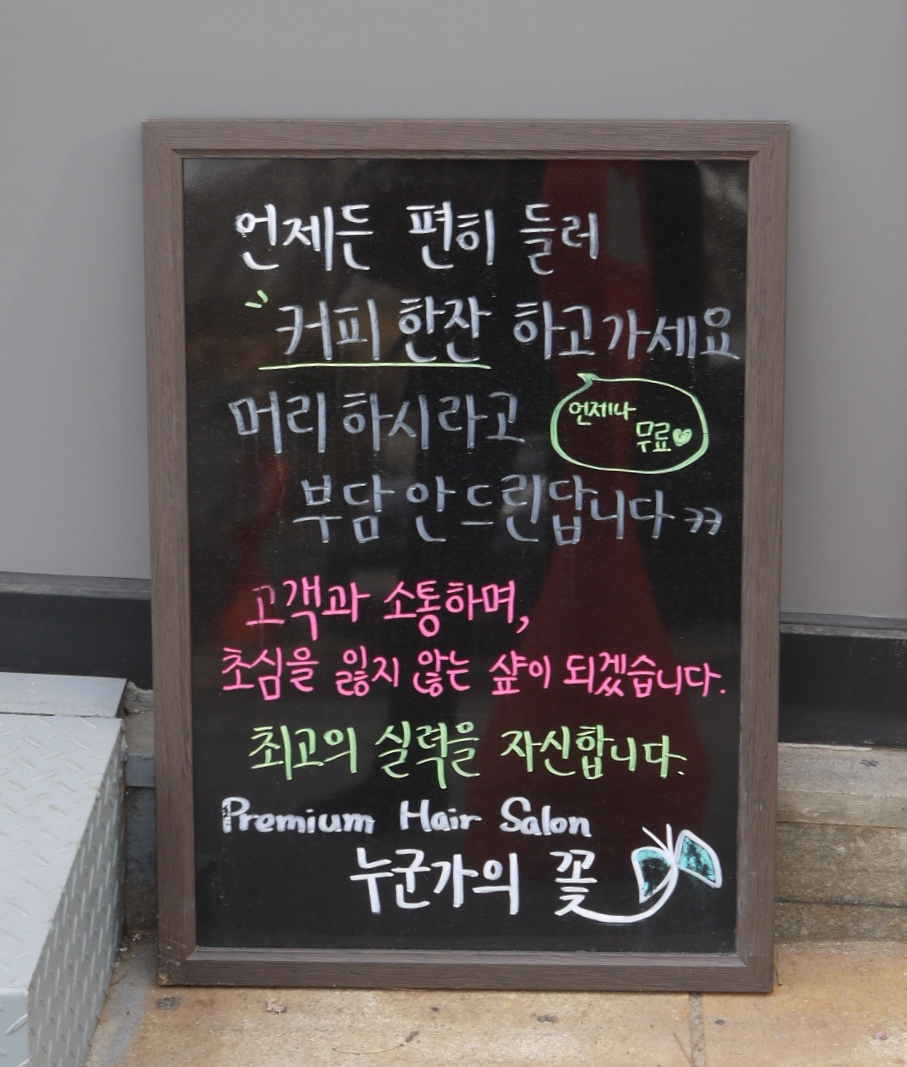 언제든 편히 들러
커피 한잔 하고가세요
머리하시라고
언제나
무료
부담 안드린답니다 ㅋㅋ
고객과 소통하며,
초심을 잃지 않는 샾이 되겠습니다.
최고의 실력을 자신합니다.
Premium Hair Salon
누군가의 꽃